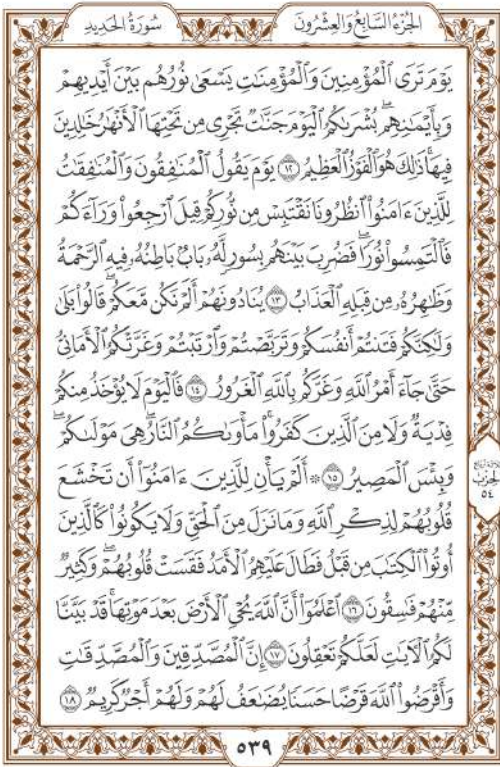 سُورَةُ الحَدِيدِ
الجُزْءُ السَّابِعُ وَالعِشْرُونَ
يَوْمَ تَرَى ٱلْمُؤْمِنِينَ وَٱلْمُؤْمِنَٰتِ يَسْعَىٰ نُورُهُم بَيْنَ أَيْدِيهِمْ
وَبِأَيْمَٰنِهِمۖ بُشْرَىٰكُمُ ٱلْيَوْمَ جَنَّٰتٌ تَجْرِى مِن تَحْتِهَا ٱلْأَنْهَٰرُ خَٰلِدِينَ
فِيهَاۚ ذَٰلِكَ هُوَ ٱلْفَوْزُ ٱلْعَظِيمُ ١٢ يَوْمَ يَقُولُ ٱلْمُنَٰفِقُونَ وَٱلْمُنَٰفِقَٰتُ
لِلَّذِينَ ءَامَنُوا۟ ٱنظُرُونَا نَقْتَبِسْ مِن نُّورِكُمْ قِيلَ ٱرْجِعُوا۟ وَرَآءَكُمْ
فَٱلْتَمِسُوا۟ نُورًاۖ فَضُرِبَ بَيْنَهُم بِسُورٍ لَّهُۥ بَابٌۢ بَاطِنُهُۥ فِيهِ ٱلرَّحْمَةُ
وَظَٰهِرُهُۥ مِن قِبَلِهِ ٱلْعَذَابُ ١٣ يُنَادُونَهُمْ أَلَمْ نَكُن مَّعَكُمْۖ قَالُوا۟ بَلَىٰ
وَلَٰكِنَّكُمْ فَتَنتُمْ أَنفُسَكُمْ وَتَرَبَّصْتُمْ وَٱرْتَبْتُمْ وَغَرَّتْكُمُ ٱلْأَمَانِىُّ
حَتَّىٰ جَآءَ أَمْرُ ٱللَّهِ وَغَرَّكُم بِٱللَّهِ ٱلْغَرُورُ ١٤ فَٱلْيَوْمَ لَا يُؤْخَذُ مِنكُمْ
فِدْيَةٌ وَلَا مِنَ ٱلَّذِينَ كَفَرُوا۟ۚ مَأْوَىٰكُمُ ٱلنَّارُۖ هِىَ مَوْلَىٰكُمْۖ
وَبِئْسَ ٱلْمَصِيرُ ١٥ ۞ أَلَمْ يَأْنِ لِلَّذِينَ ءَامَنُوٓا۟ أَن تَخْشَعَ
قُلُوبُهُمْ لِذِكْرِ ٱللَّهِ وَمَا نَزَلَ مِنَ ٱلْحَقِّ وَلَا يَكُونُوا۟ كَٱلَّذِينَ
أُوتُوا۟ ٱلْكِتَٰبَ مِن قَبْلُ فَطَالَ عَلَيْهِمُ ٱلْأَمَدُ فَقَسَتْ قُلُوبُهُمْۖ وَكَثِيرٌ
مِّنْهُمْ فَٰسِقُونَ ١٦ ٱعْلَمُوٓا۟ أَنَّ ٱللَّهَ يُحْىِ ٱلْأَرْضَ بَعْدَ مَوْتِهَاۚ قَدْ بَيَّنَّا
لَكُمُ ٱلْءَايَٰتِ لَعَلَّكُمْ تَعْقِلُونَ ١٧ إِنَّ ٱلْمُصَّدِّقِينَ وَٱلْمُصَّدِّقَٰتِ
وَأَقْرَضُوا۟ ٱللَّهَ قَرْضًا حَسَنًا يُضَٰعَفُ لَهُمْ وَلَهُمْ أَجْرٌ كَرِيمٌ ١٨
الحزب
٥٤
٥٣٩